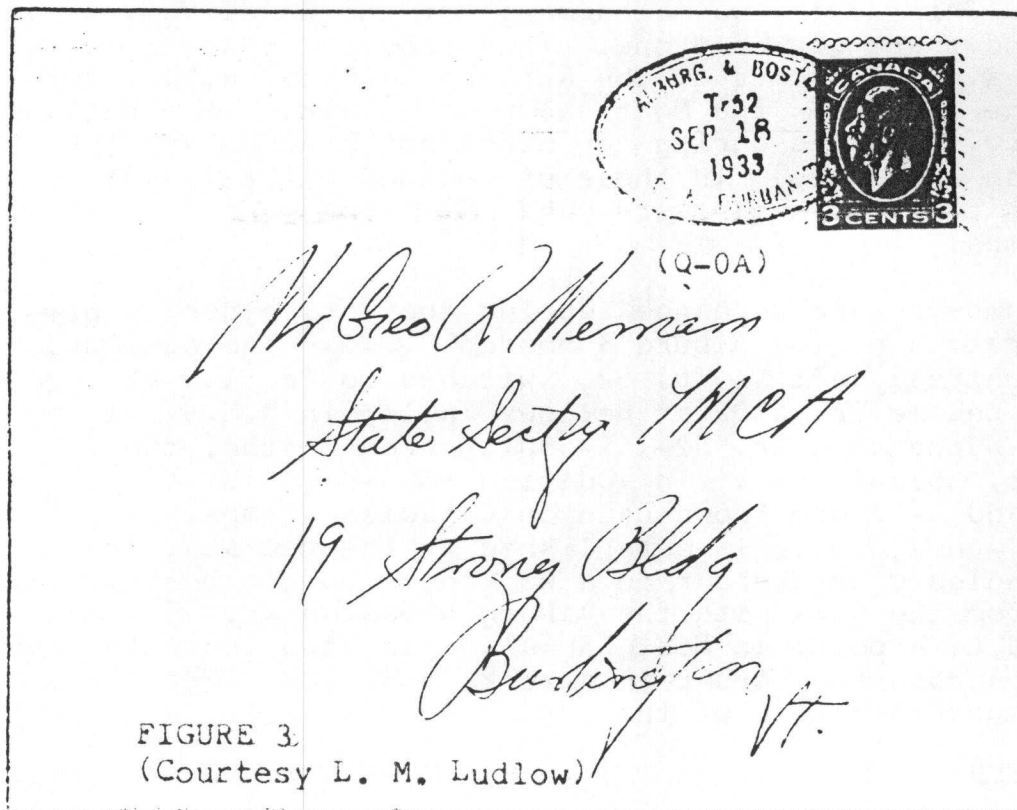 ALBURG. & BOST
Tr52
SEP 18
1933
FAIRBAN
CANADA
POSTES POSTAGE
3 CENTS 3
(Q-0A)
Mr Geo R Merriam
State Sectry YMCA
19 Strong Bldg
Burlington
Vt.
FIGURE 3
(Courtesy L. M. Ludlow)